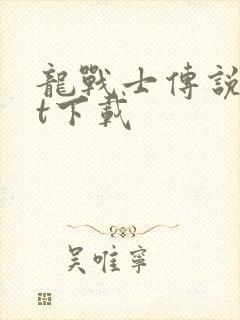 龍戰士傳說
t下載
吴唯寧